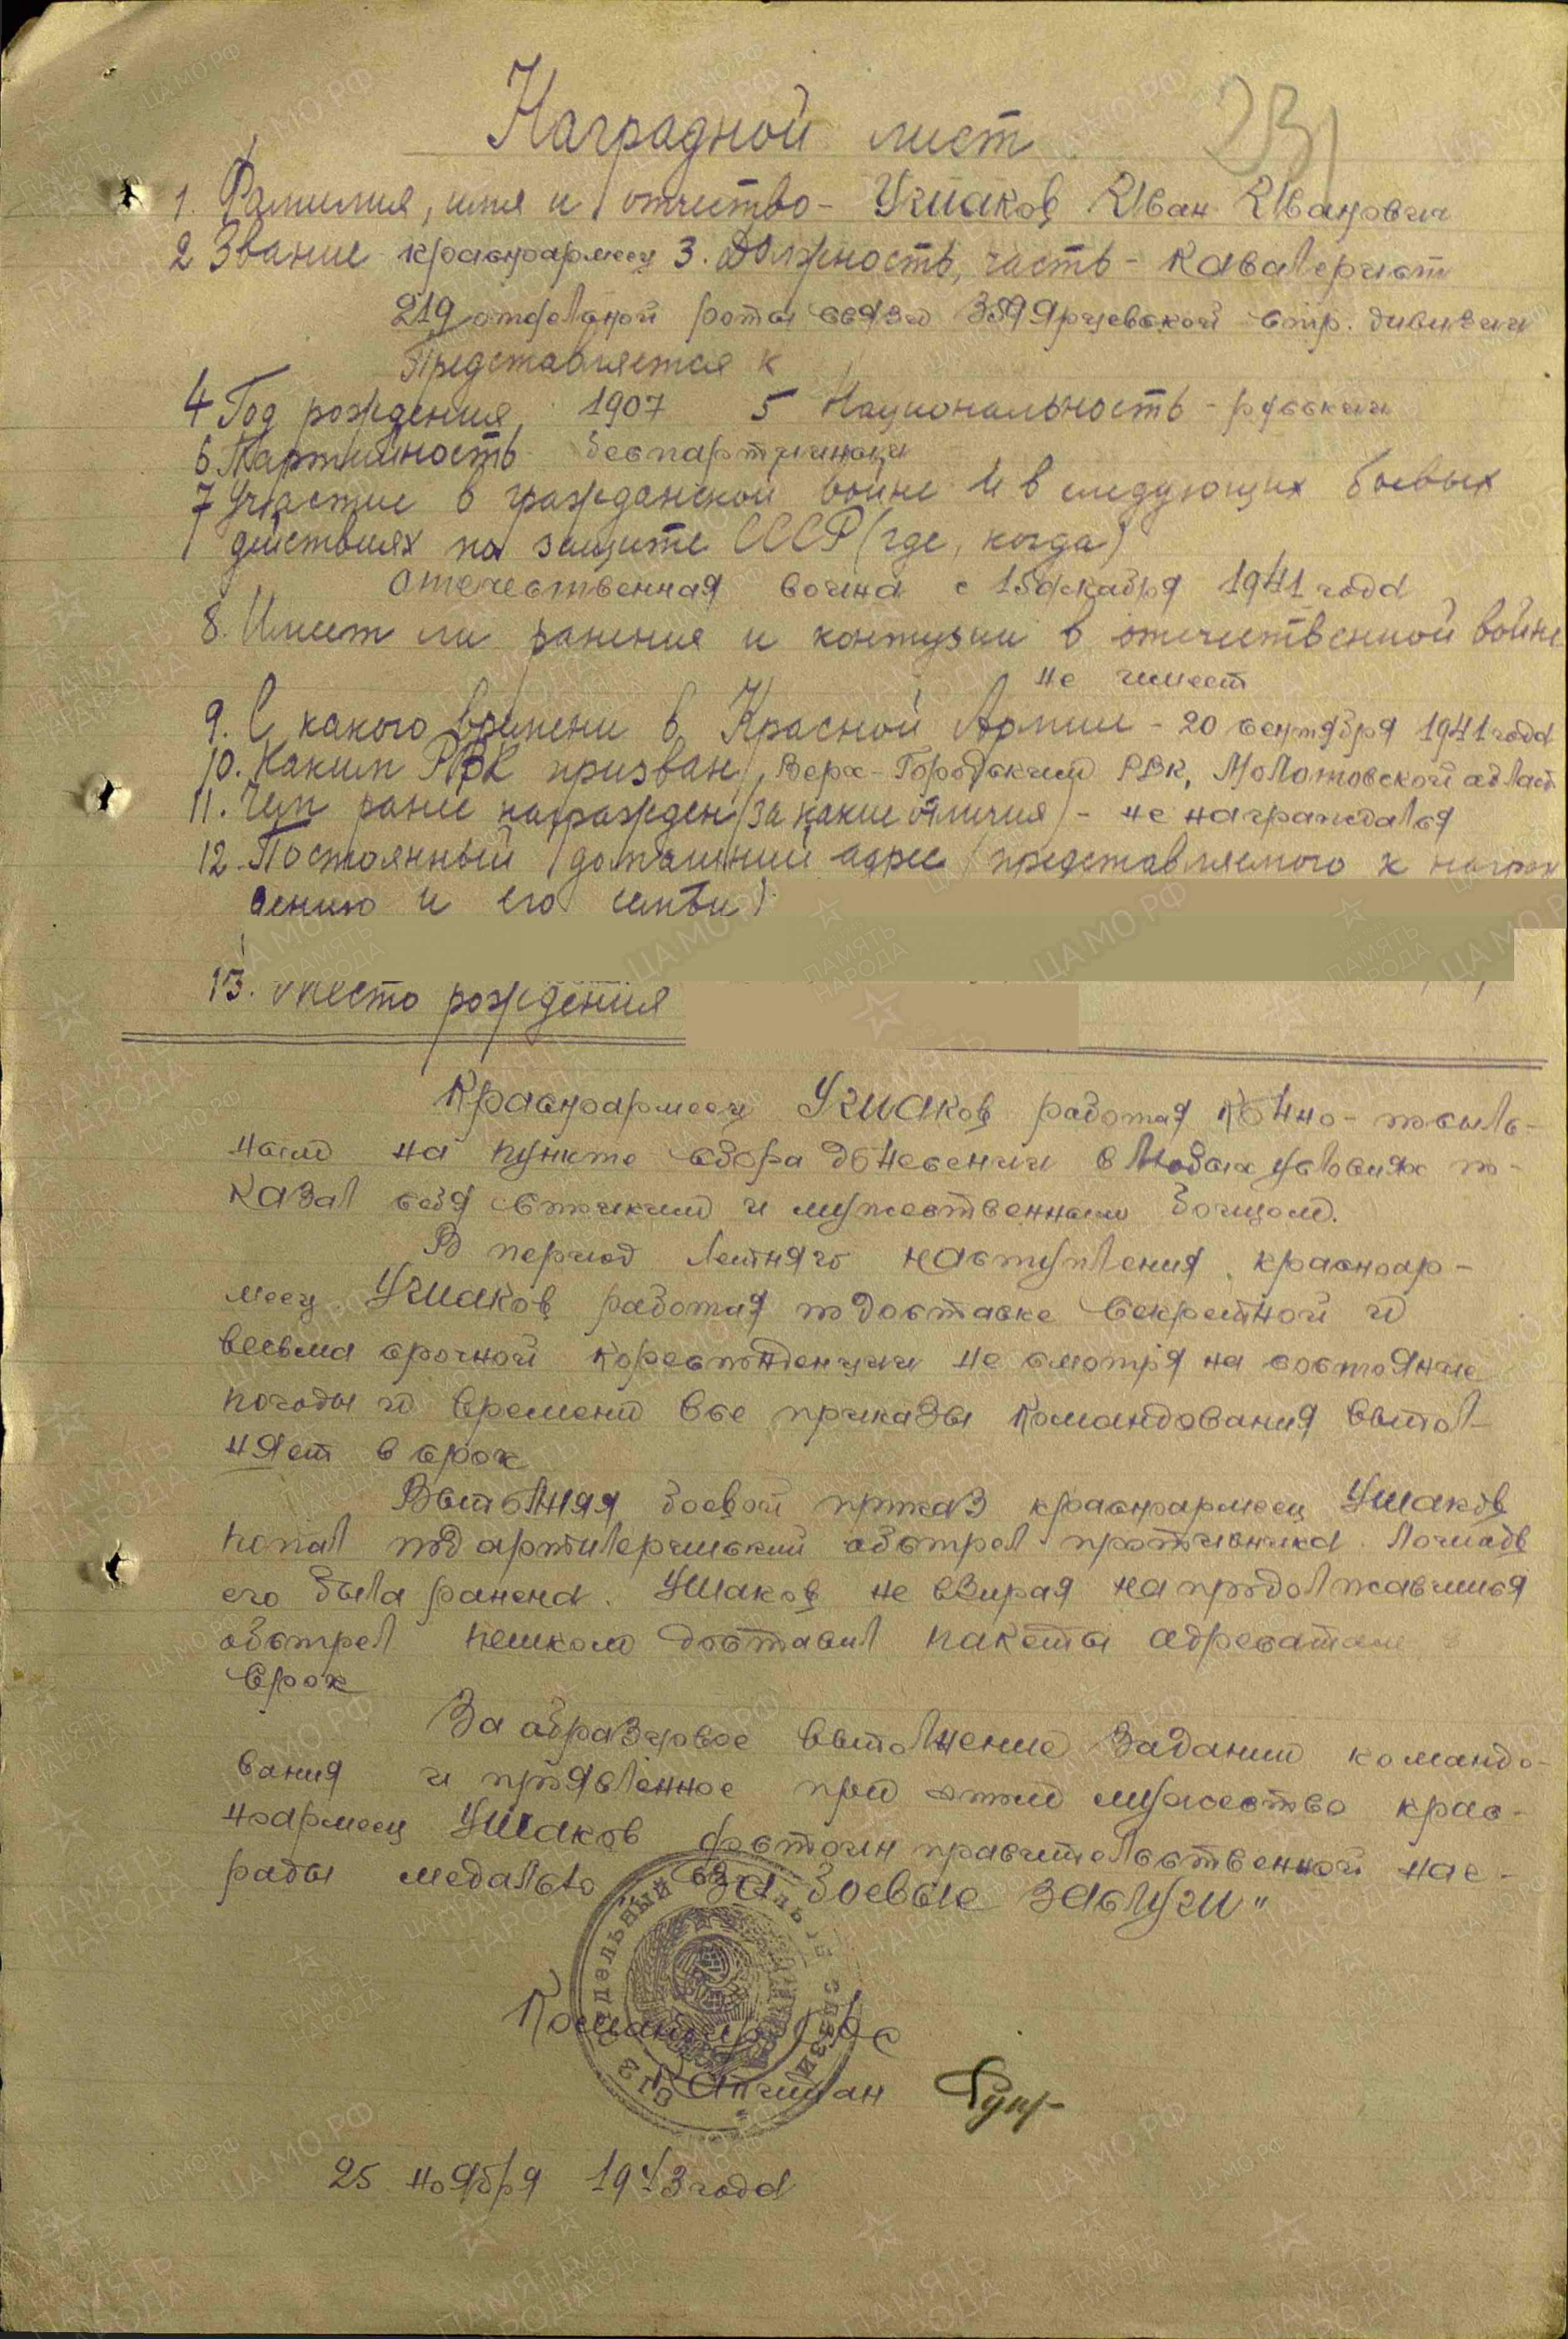 231
Наградной лист
1. Фамилия, имя и отчество - Ушаков Иван Иванович
2 Звание красноармеец 3. Должность, часть - Кавалерист
219 отдельной роты связи 359 Ярцевской стр. дивизии
Представляется к
4 Год рождения 1907 5 Национальность - русский
6 Партийность беспартийный
7 Участие в гражданской войне и в следующих боевых
действиях по защите СССР (где, когда)
Отечественная война с 15 декабря 1941 года
8. Имеет ли ранения и контузии в отечественной войне
не имеет
9. С какого времени в Красной Армии - 20 сентября 1941 года
10. Каким РВК призван, Верх-Городским РВК, Молотовской област
11. Чем ранее награжден (за какие отличия) - не награждался
12. Постоянный (домашний адрес (представляемого к награж
дению и его семьи)
13. Место рождения
Красноармеец Ушаков работая конно-посыль-
ным на пункте сбора донесений в любых условиях по-
казал себя стойким и мужественным бойцом.
В период летняго наступления красноар-
меец Ушаков работая по доставке секретной и
весьма срочной кореспонденции не смотря на состояние
погоды и времени все приказы командования выпол-
няет в срок
Выполняя боевой приказ красноармеец Ушаков
попал под артилерийский обстрел противника. Лошадь
его была ранена. Ушаков не взирая на продолжавшийся
обстрел пешком доставил пакеты адресатам в
срок
За образцовое выполнение заданий командо-
вания и проявленное при этом мужество крас-
ноармеец Ушаков достоин правительственной наг-
рады медалью "За боевые заслуги"
Командир ОРС
Капитан
25 ноября 1943 года
ЦАМО РФ
ПАМЯТЬ НАРОДА